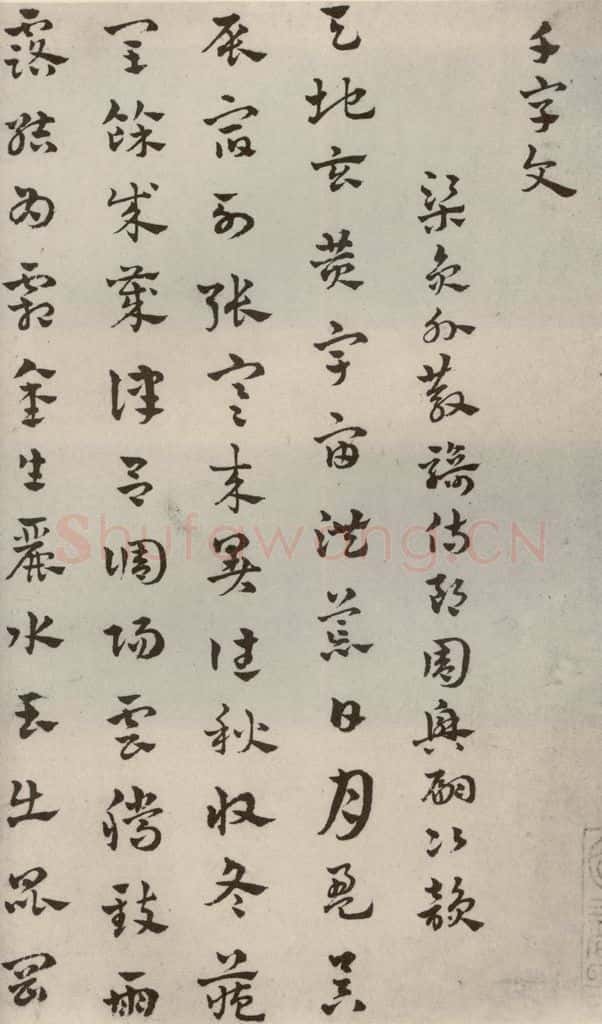 千字文
梁員外散騎侍郎周興嗣次韻
天地玄黃宇宙洪荒日月盈昃
辰宿列張寒来暑往秋收冬藏
閏餘成歲律呂調陽雲騰致雨
露結為霜金生麗水玉出崑岡
Shufawang.CN